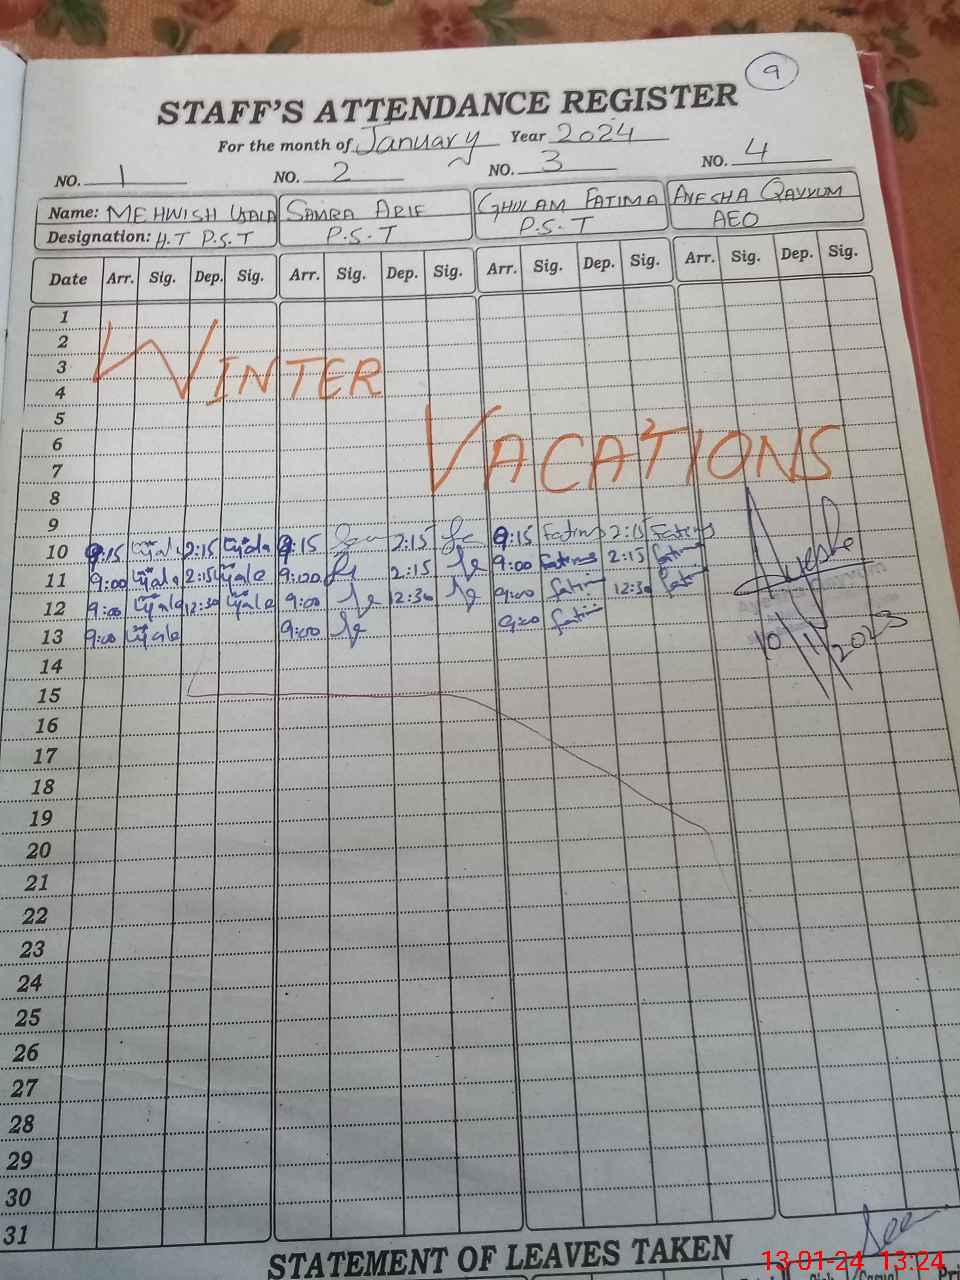 9
STAFF'S ATTENDANCE REGISTER
For the month of January Year 2024
NO. 1 NO. 2 NO. 3 NO. 4
Name: MEHWISH UJALA SAMRA ARIF GHULAM FATIMA AYESHA QAYYUM
Designation: H.T P.S.T P.S.T P.S.T AEO
Date Arr. Sig. Dep. Sig. Arr. Sig. Dep. Sig. Arr. Sig. Dep. Sig. Arr. Sig. Dep. Sig.
1
2
3
4
WINTER
5
6
7
VACATIONS
8
9
10 9:15 Ujala 2:15 Ujala 9:15 2:15 9:15 Fatima 2:15 Fatima
11 9:00 Ujala 2:15 Ujala 9:00 2:15 9:00 Fatima 2:15 Fatima
12 9:00 Ujala 12:30 Ujala 9:00 12:30 9:00 Fatima 12:30 Fatima
13 9:00 Ujala 9:00 9:00 Fatima
Ayesha
10/1/2023
14
15
16
17
18
19
20
21
22
23
24
25
26
27
28
29
30
31
See
STATEMENT OF LEAVES TAKEN
13-01-24 13:24